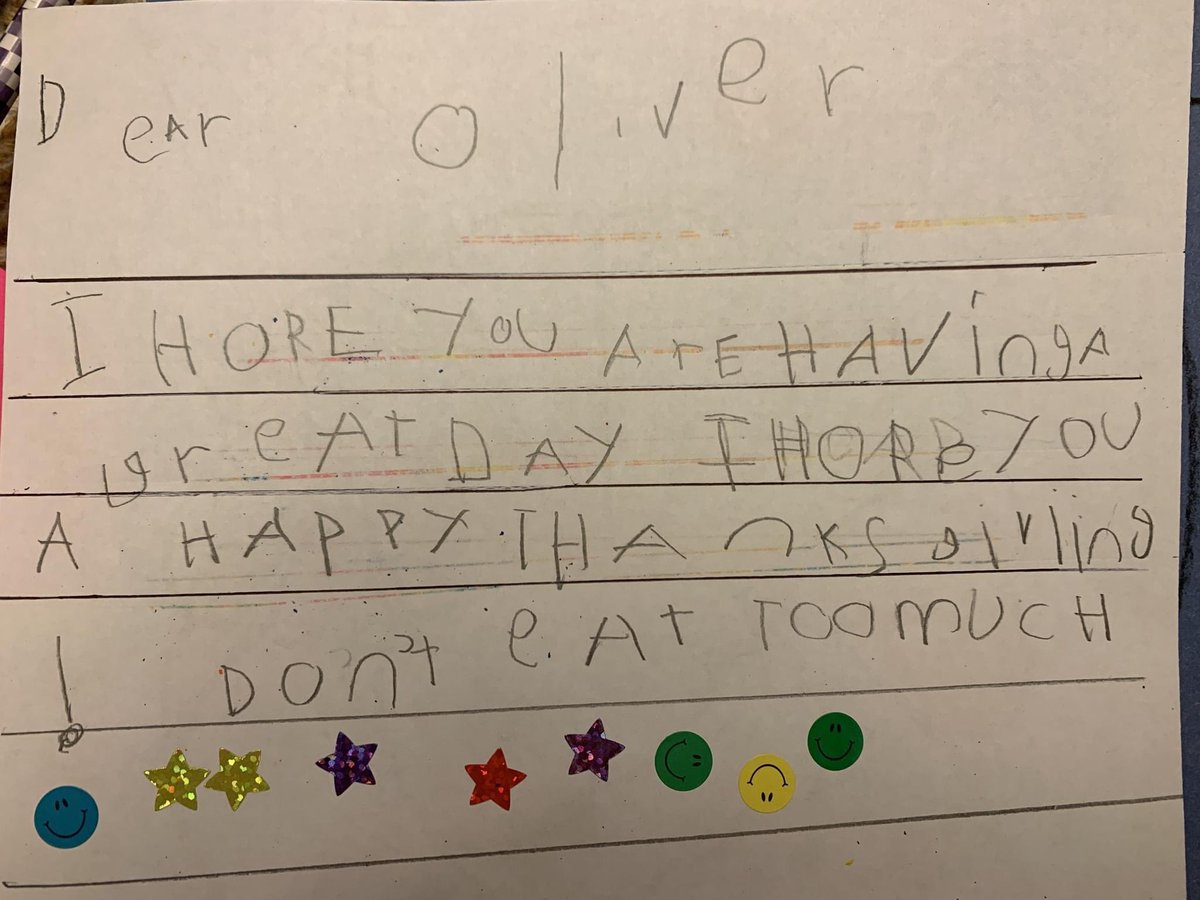 Dear Oliver
I HOPE YOU ArE HAVingA
greAt DAY I HOPE YOU
A HAPPY THAnKS givIing
! DOn't eAt TOO mUCH